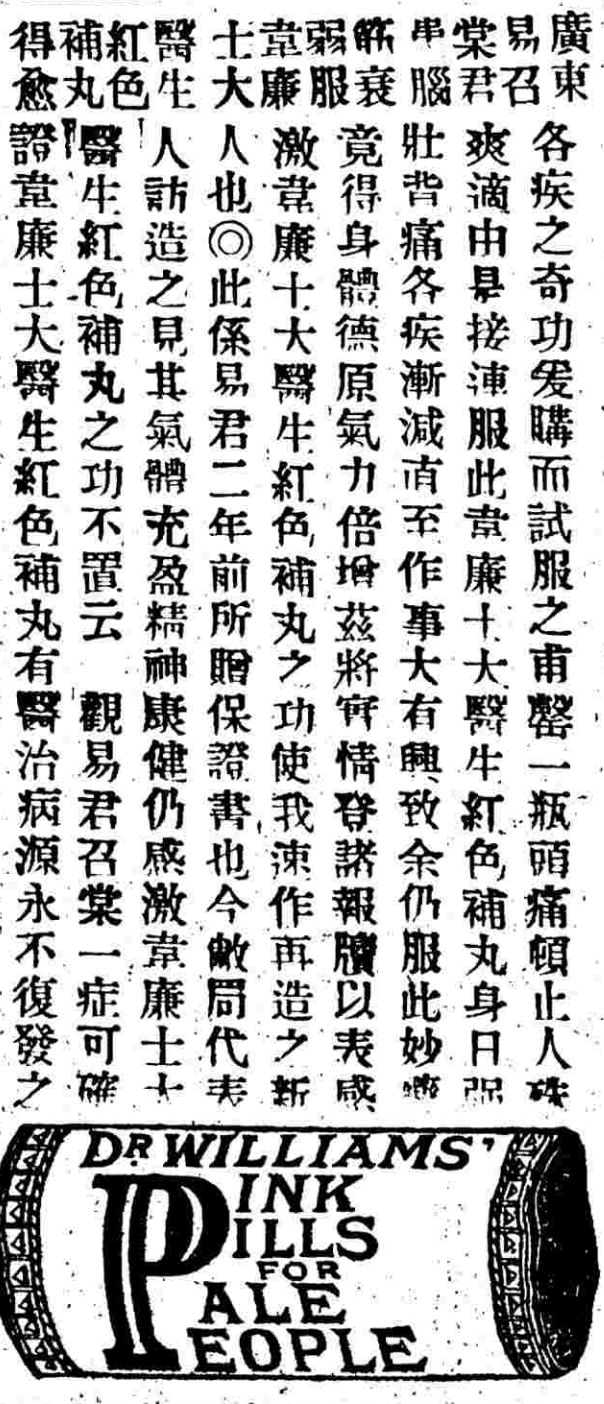 廣東
易召
棠君
串腦
筋衰
弱服
韋廉
士大
醫生
紅色
補丸
得愈
各疾之奇功爰購而試服之甫罄一瓶頭痛頓止人殊
爽適由是接連服此韋廉士大醫生紅色補丸身日强
壯背痛各疾漸減直至作事大有興致余仍服此妙
竟得身體德原氣力倍增茲將實情登諸報牘以表感
激韋廉士大醫生紅色補丸之功使我速作再造之新
人也◎此係易君二年前所贈保證書也今敝局代表
人訪造之見其氣體充盈精神康健仍感激韋廉士大
醫生紅色補丸之功不置云 觀易君召棠一症可確
證韋廉士大醫生紅色補丸有醫治病源永不復發之
DR WILLIAMS'
PINK
PILLS
FOR
PALE
PEOPLE